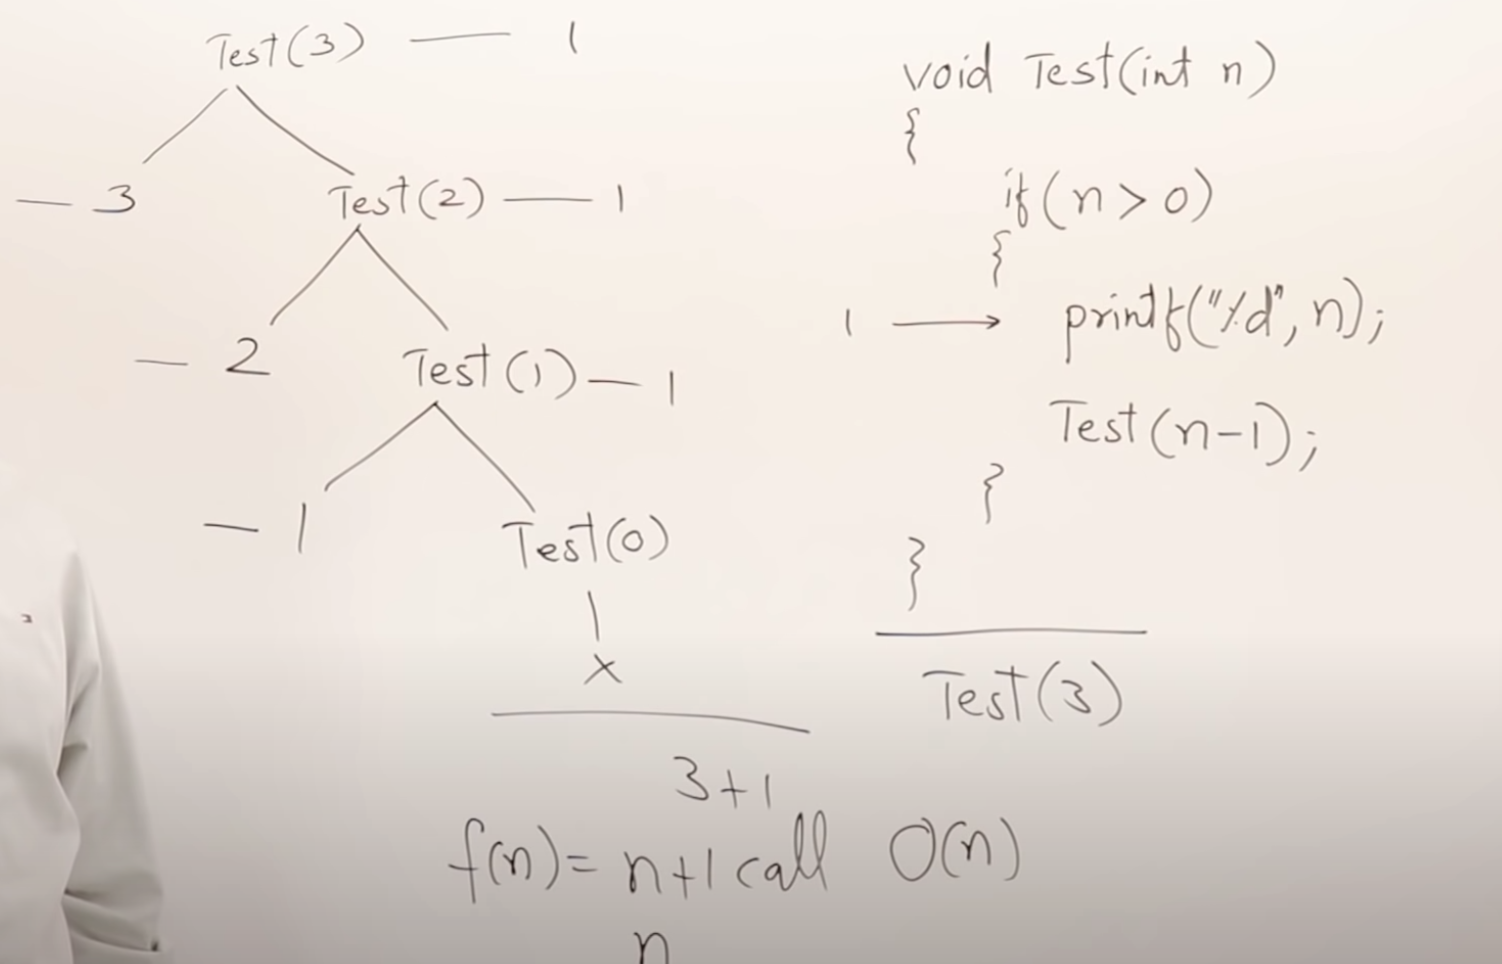 Test(3) — 1
— 3 Test(2) — 1
— 2 Test(1) — 1
— 1 Test(0)
x
3+1
f(n)= n+1 call O(n)
n
void Test(int n)
{
if(n>0)
{
1 → printf("%d", n);
Test(n-1);
}
}
Test(3)